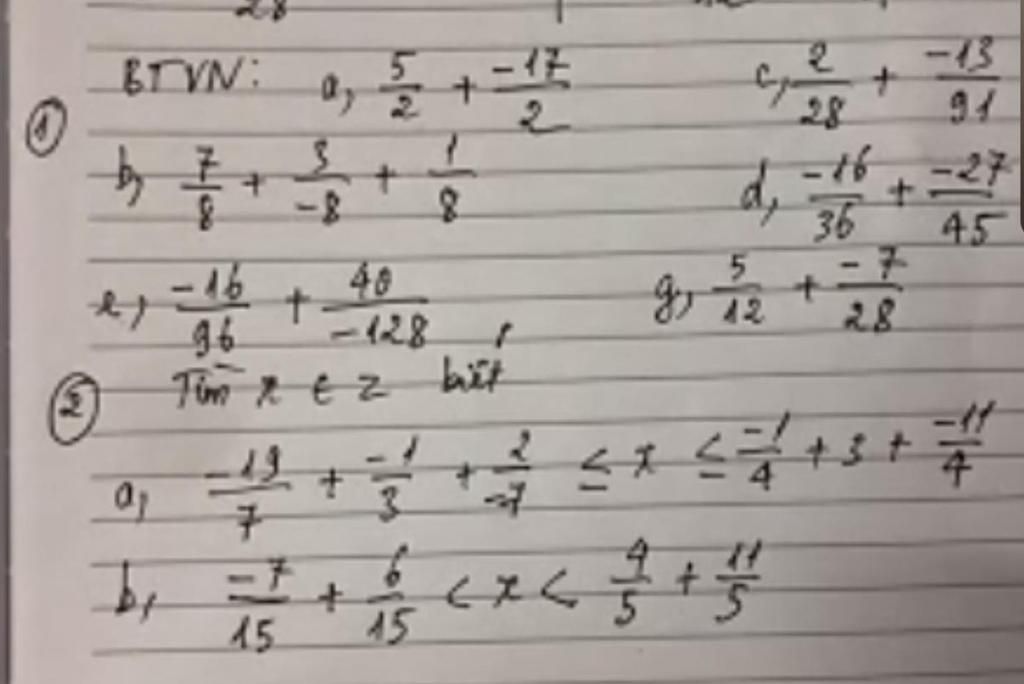 28
BTVN: a, 5/2 + -17/2 c, 2/28 + -13/91
① b, 7/8 + 3/-8 + 1/8 d, -16/36 + -27/45
e, -16/96 + 40/-128 g, 5/12 + -7/28
② Tìm x ∈ Z biết
a, -19/7 + -1/3 + 2/-7 ≤ x ≤ -1/4 + 3 + -11/4
b, -7/15 + 6/15 < x < 4/5 + 11/5